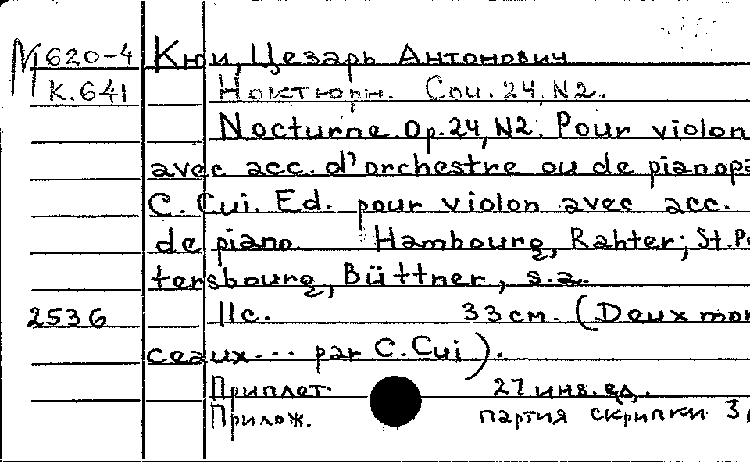 М620-4 Кюи, Цезарь Антонович
К.641 Ноктюрн. Соч. 24, N2.
Nocturne. Op. 24, N2. Pour violon
avec acc. d'orchestre ou de pianopa
C. Cui. Ed. pour violon avec acc.
de piano. Hambourg, Rahter; St. Pe
tersbourg, Büttner, s.a.
2536 11c. 33 см. (Deux mor
ceaux... par C. Cui).
Приплет. 27 инв. ед.
Прилож. партия скрипки 3